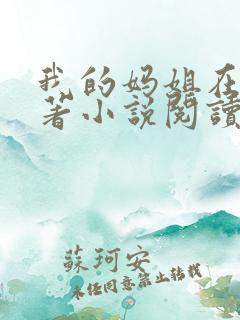 我的妈姐在
著小说閱讀
蘇珂安
未经同意禁止转载